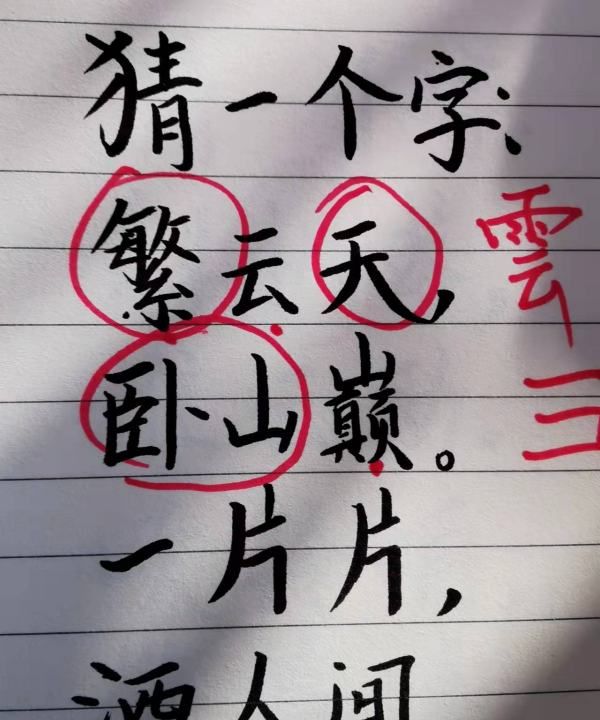 猜一个字:
繁云天,
雲
卧山巅。
彐
一片片,
洒人间